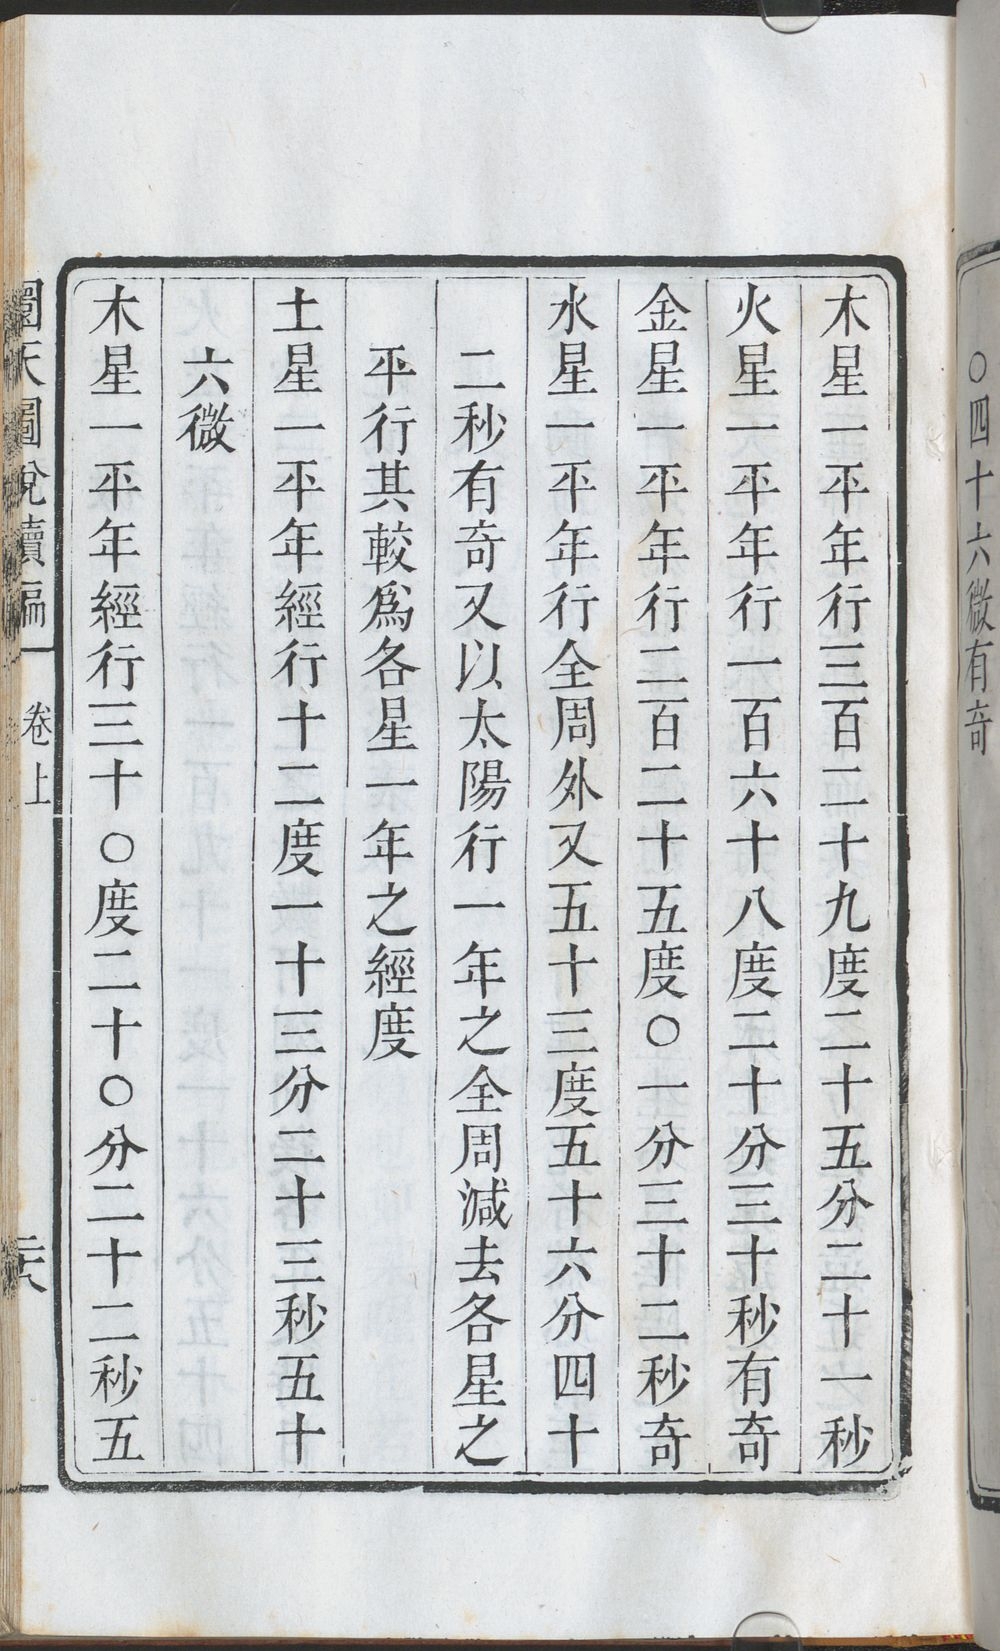 〇四十六微有奇
木星一平年行三百二十九度二十五分二十一秒
火星一平年行一百六十八度二十分三十秒有奇
金星一平年行二百二十五度〇一分三十二秒奇
水星一平年行全周外又五十三度五十六分四十
二秒有奇又以太陽行一年之全周減去各星之
平行其較爲各星一年之經度
土星一平年經行十二度一十三分二十三秒五十
六微
木星一平年經行三十〇度二十〇分二十二秒五
圜天圖說續編
卷上